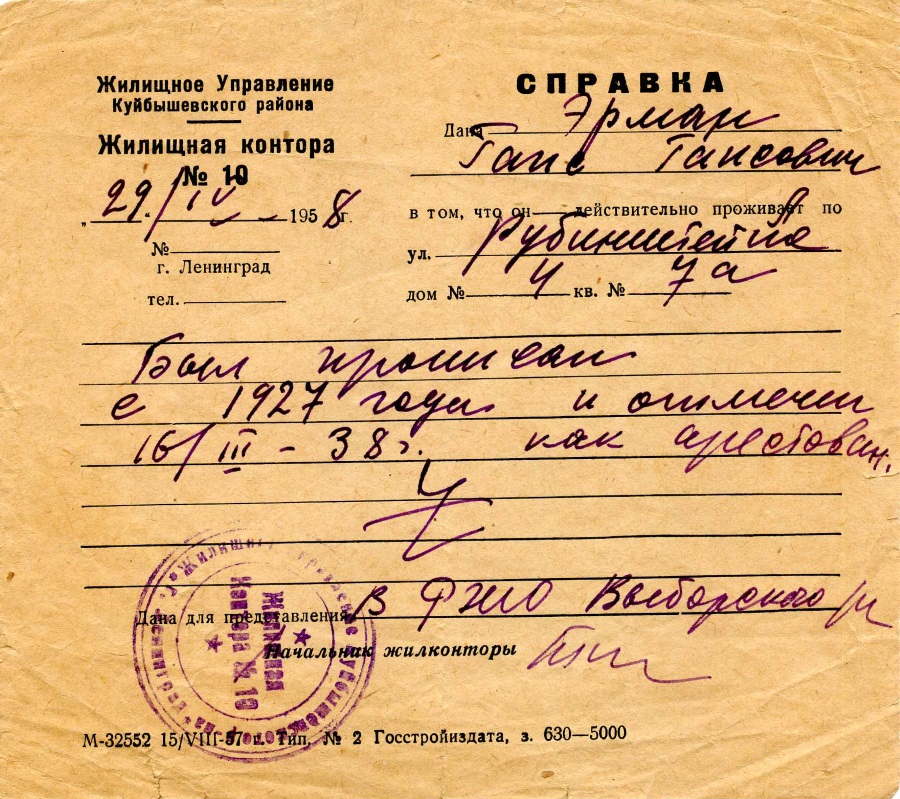 Жилищное Управление
Куйбышевского района
Жилищная контора
№ 10
„29“/IV 1958г.
№
г. Ленинград
тел.
СПРАВКА
Дана Эрман
Ганс Гансович
в том, что он действительно проживает по
ул. Рубинштейна
дом № 4 кв. № 7а
Был прописан
с 1927 года и отмечен
16/III - 38г. как арестован.
Дана для представления В РЖО Выборского р/н
Начальник жилконторы
Жилищная
контора № 10
М-32552 15/VIII-57 г. Тип. № 2 Госстройиздата, з. 630—5000